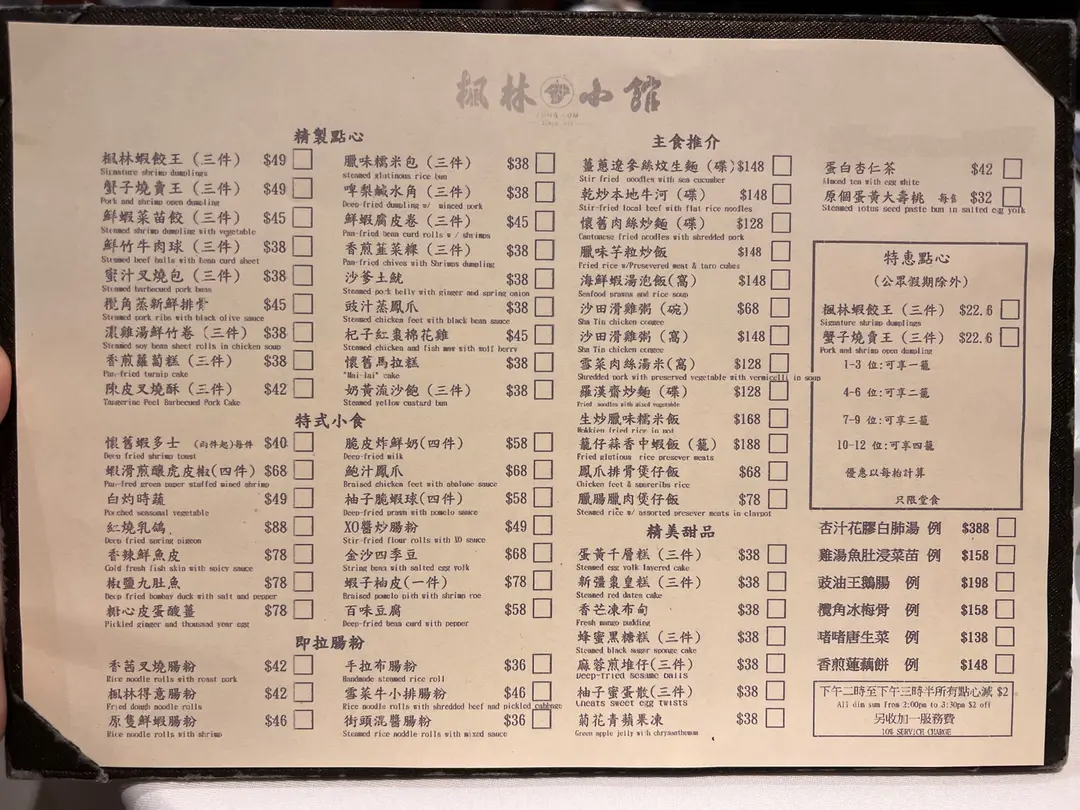 楓林小館
精製點心
楓林蝦餃王（三件） $49
Signature shrimp dumplings
蟹子燒賣王（三件） $49
Pork and shrimp open dumpling
鮮蝦菜苗餃（三件） $45
Steamed shrimp dumpling with vegetable
鮮竹牛肉球（三件） $38
Steamed beef balls with bean curd sheet
蜜汁叉燒包（三件） $38
Steamed barbecued pork buns
欖角蒸新鮮排骨 $45
Steamed pork ribs with black olive sauce
濃雞湯鮮竹卷（三件） $38
Steamed soy bean sheet rolls in chicken soup
香煎蘿蔔糕（三件） $38
Pan-fried turnip cake
陳皮叉燒酥（三件） $42
Tangerine Peel Barbecued Pork Cake
臘味糯米包（三件） $38
steamed glutinous rice bun
啤梨鹹水角（三件） $38
Deep-fried dumpling w/ minced pork
鮮蝦腐皮卷（三件） $45
Pan-fried bean curd rolls w / shrimps
香煎韮菜粿（三件） $38
Pan-fried chives with Shrimps dumpling
沙爹土魷 $38
Steamed pork belly with ginger and spring onion
豉汁蒸鳳爪 $38
Steamed chicken feet with black bean sauce
杞子紅棗棉花雞 $45
Steamed chicken and fish maw with wolf berry
懷舊馬拉糕 $38
"Mai-lai" cake
奶黃流沙飽（三件） $38
Steamed yellow custard bun
特式小食
懷舊蝦多士 （兩件起）每件 $40
Deep fried shrimp toast
蝦滑煎釀虎皮椒(四件) $68
Pan-fred green paper stuffed mined shrimp
白灼時蔬 $49
Poached seasonal vegetable
紅燒乳鴿 $88
Deep fried spring pigeon
香辣鮮魚皮 $78
Cold fresh fish skin with spicy sauce
椒鹽九肚魚 $78
Deep fried bombay duck with salt and pepper
糖心皮蛋酸薑 $78
Pickled ginger and thousand year egg
脆皮炸鮮奶(四件) $58
Deep-fried milk
鮑汁鳳爪 $68
Braised chicken feet with abalone sauce
柚子脆蝦球(四件) $58
Deep-fried prawn with pomelo sauce
XO醬炒腸粉 $49
Stir-fried flour rolls with XO sauce
金沙四季豆 $68
String bean with salted egg yolk
蝦子柚皮(一件) $78
Braised pomelo pith with shrimp roe
百味豆腐 $58
Deep-fried bean curd with pepper
即拉腸粉
香茜叉燒腸粉 $42
Rice noodle rolls with roast pork
楓林得意腸粉 $42
Fried dough noodle rolls
原隻鮮蝦腸粉 $46
Rice noodle rolls with shrimp
手拉布腸粉 $36
Handmade steamed rice roll
雪菜牛小排腸粉 $46
Rice noodle rolls with shredded beef and pickled cabbage
街頭混醬腸粉 $36
Steamed rice noddle rolls with mixed sauce
主食推介
薑蔥遼參絲炆生麵（碟） $148
Stir fried noodles with sea cucumber
乾炒本地牛河（碟） $148
Stir-fried local beef with flat rice noodles
懷舊肉絲炒麵（碟） $128
Cantonese fried noodles with shredded pork
臘味芋粒炒飯 $148
Fried rice w/Presevered meat & taro cubes
海鮮蝦湯泡飯(窩) $148
Seafood prawns and rice soup
沙田雞粥（碗） $68
Sha Tin chicken congee
沙田雞粥（窩） $148
Sha Tin chicken congee
雪菜肉絲湯米(窩) $128
Shredded pork with preserved vegetable with vermicelli in soup
羅漢齋炒麵（碟） $128
Fried noodles with mixed vegetable
生炒臘味糯米飯 $168
Hokkien fried rice in pot
籠仔蒜香中蝦飯（籠） $188
Fried glutious rice presever meats
鳳爪排骨煲仔飯 $68
Chicken feet & spareribs rice
臘腸臘肉煲仔飯 $78
Steamed rice w/ assorted presever meats in claypot
精美甜品
蛋黃千層糕（三件） $38
Steamed egg yolk layered cake
新疆棗皇糕（三件） $38
Steamed red dates cake
香芒凍布甸 $38
Fresh mango pudding
蜂蜜黑糖糕（三件） $38
Steamed black sugar sponge cake
麻蓉煎堆仔(三件) $38
Deep-fried sesame balls
柚子蜜蛋散(三件) $38
Cheats sweet egg twists
菊花青蘋果凍 $38
Green apple jelly with chrysanthemum
蛋白杏仁茶 $42
Almond tea with egg white
原個蛋黃大壽桃 每售 $32
Steamed lotus seed paste bun in salted egg york
特惠點心
(公眾假期除外)
楓林蝦餃王（三件） $22.6
Signature shrimp dumplings
蟹子燒賣王（三件） $22.6
Pork and shrimp open dumpling
1-3 位:可享一籠
4-6 位:可享二籠
7-9 位:可享三籠
10-12 位:可享四籠
優惠以每枱計算
只限堂食
杏汁花膠白肺湯 例 $388
雞湯魚肚浸菜苗 例 $158
豉油王鵝腸 例 $198
欖角冰梅骨 例 $158
啫啫唐生菜 例 $138
香煎蓮藕餅 例 $148
下午二時至下午三時半所有點心減 $2
All dim sum from 2:00pm to 3:30pm $2 off
另收加一服務費
10% SERVICE CHARGE